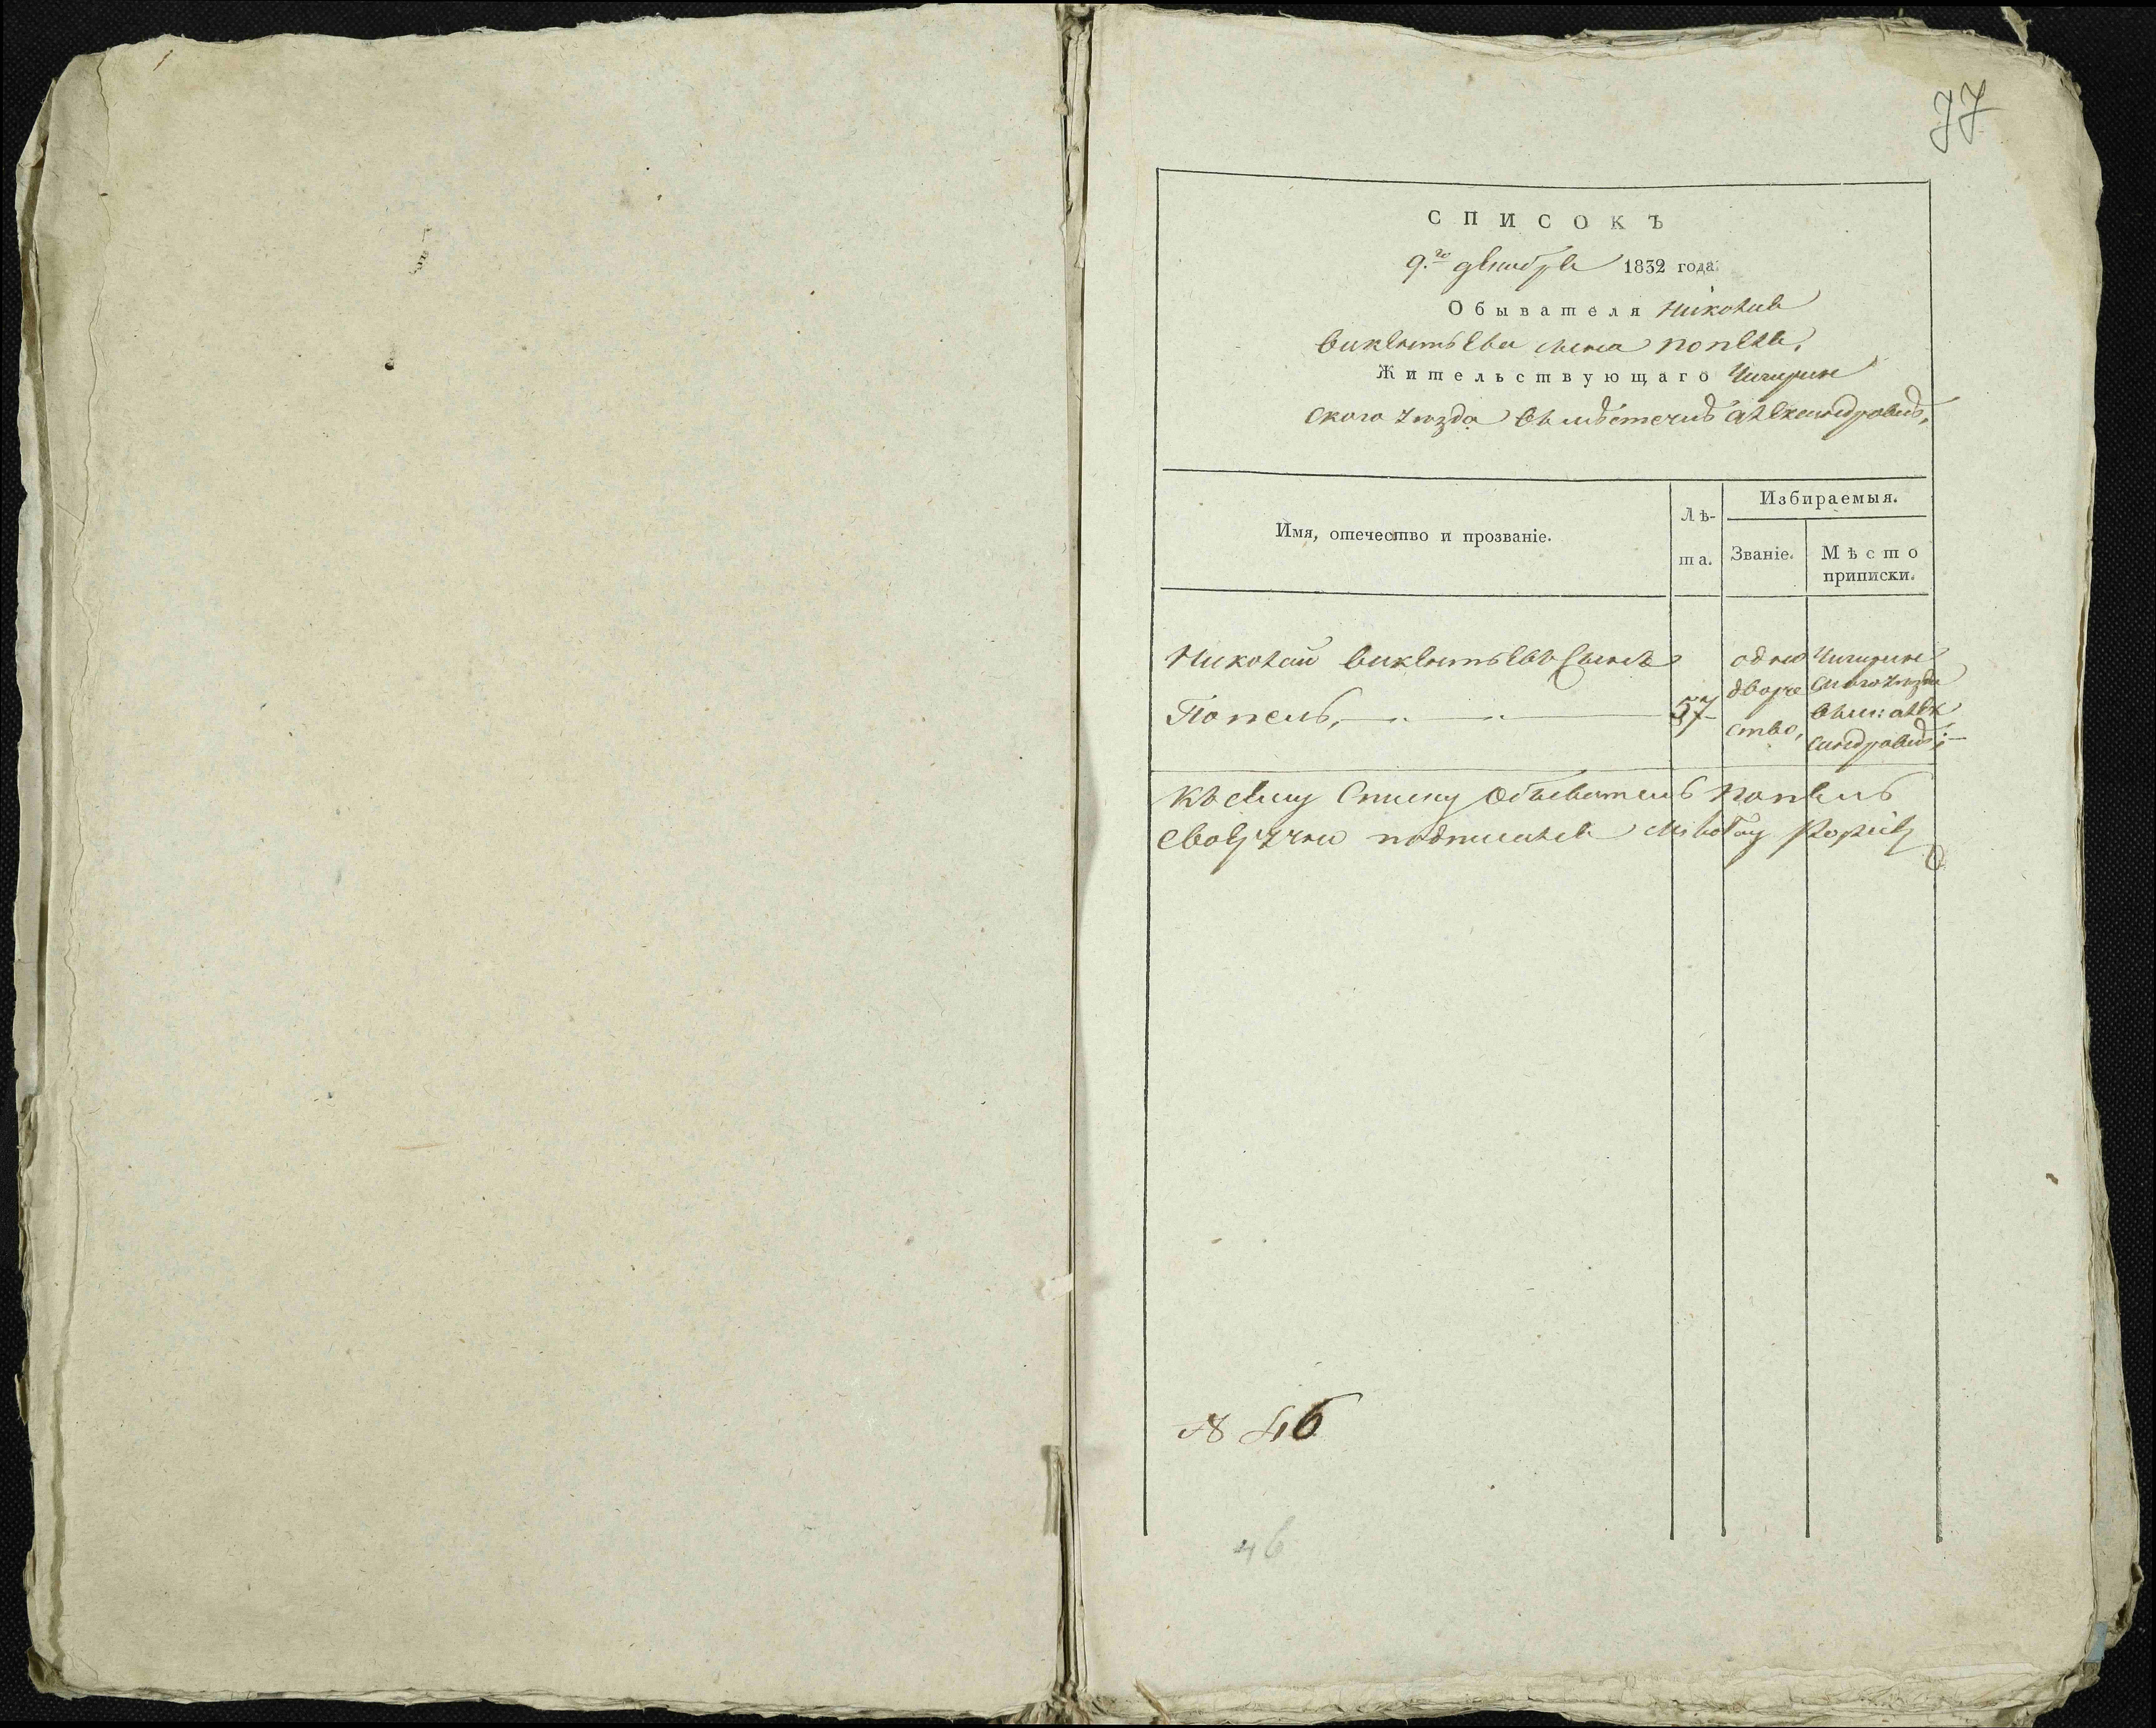 77
СПИСОКЪ
9.го декабря 1832 года.
Обывателя Николая
Викентьева сына Попеля,
Жительствующаго Чигирин
ского уезда въ мѣстечкѣ Александровкѣ,
Имя, отечество и прозваніе.
Лѣ-
та.
Избираемыя.
Званіе.
Мѣсто
приписки.
Николай Викентьевъ Сынъ
Попель,
57
одно
дворче
ство,
Чигирин
ского уезда
въ м: Алек
сандровкѣ;
Къ сему Списку Обыватель Попель
своеручно подписался Mikołay Popiel
№ 46
46